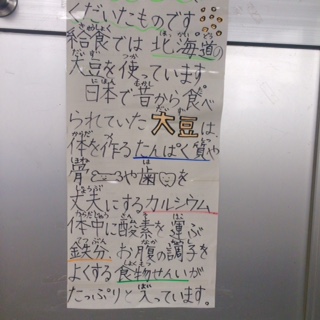 くだいたものです
給食では北海道の
大豆を使っています
日本で昔から食べ
られていた大豆は、
体を作るたんぱく質や
骨や歯を
丈夫にするカルシウム
体中に酸素を運ぶ
鉄分、お腹の調子を
よくする食物せんいが
たっぷりと入っています。